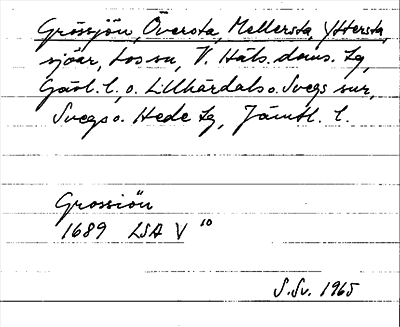 Grössjön, Översta, Mellersta, Yttersta,
sjöar, Los sn, V. Häls. doms. lg,
Gävl. l. o. Lillhärdals o. Svegs snr,
Svegs o. Hede lg, Jämtl. l.
Grossiön
1689 LSA V 10
S.Sv. 1965